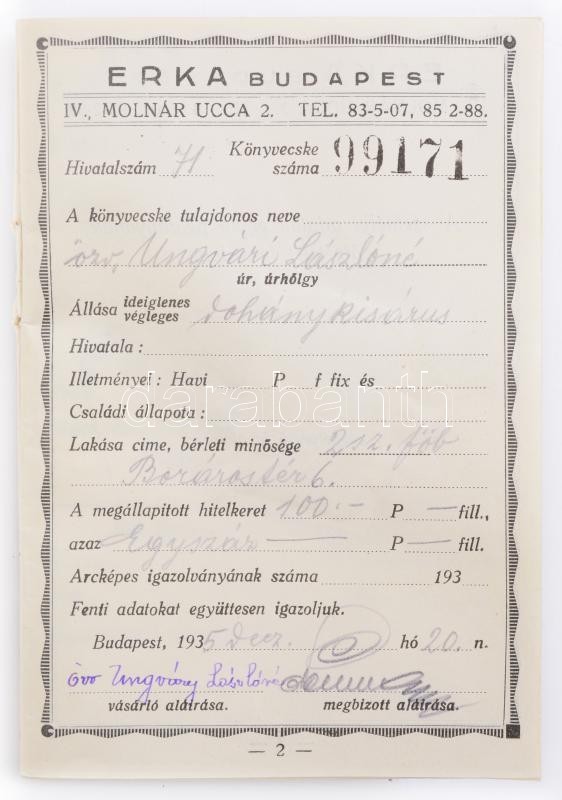 ERKA BUDAPEST
IV., MOLNÁR UCCA 2. TEL. 83-5-07, 85 2-88.
Hivatalszám 71 Könyvecske száma 99171
A könyvecske tulajdonos neve
özv. Ungvári Lászlóné
úr, úrhölgy
Állása ideiglenes végleges dohánykisárus
Hivatala :
Illetményei : Havi P f fix és
Családi állapota :
Lakása cime, bérleti minősége 2 sz. főb
Borárostér 6.
A megállapitott hitelkeret 100.- P — fill.,
azaz Egyszáz — P — fill.
Arcképes igazolványának száma 193
Fenti adatokat együttesen igazoljuk.
Budapest, 1935 decz. hó 20. n.
özv Ungváry Lászlóné
vásárló aláirása. megbizott aláirása.
— 2 —
darabanth